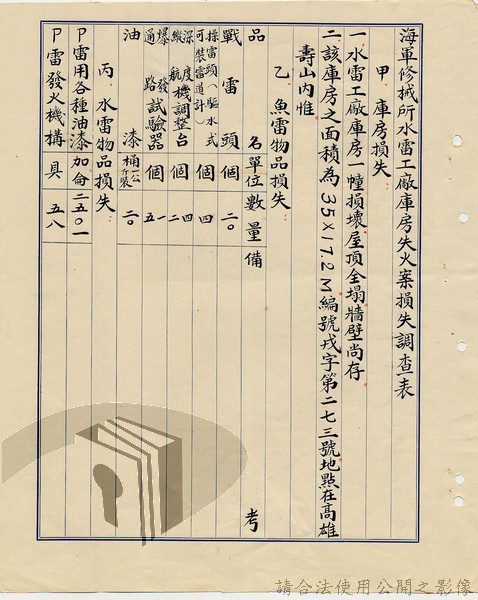 海軍修械所水雷工廠庫房失火案損失調查表
甲　庫房損失
一水雷工廠庫房一幢損壞屋頂全塌牆壁尚存
二該庫房之面積為35×17.2M編號戍字第二七三號地點在高雄
壽山內惟
乙　魚雷物品損失
品　名　單位　數量　備　考
戰雷頭　個　二〇
操雷頭（驅水式可裝雷道計）　個　四
深度機縱航機調整台　個　四二
爆發通路試驗器　個　一五
油漆　桶　二〇
丙　水雷物品損失
P雷用各種油漆　加侖　二五〇一
P雷發火機構　具　五八
請合法使用公開之影像